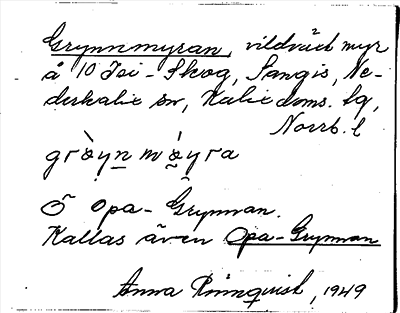 Grynnmyran, vildväxt myr
å 10 Jei-Skog, Sangis, Ne-
derkalix sn, Kalix doms. lq,
Norrb. l
grə̀yn mə́yra
Ö Opa-Grynnan.
Kallas även Opa-Grynnan
Anna Rönnquist, 1949